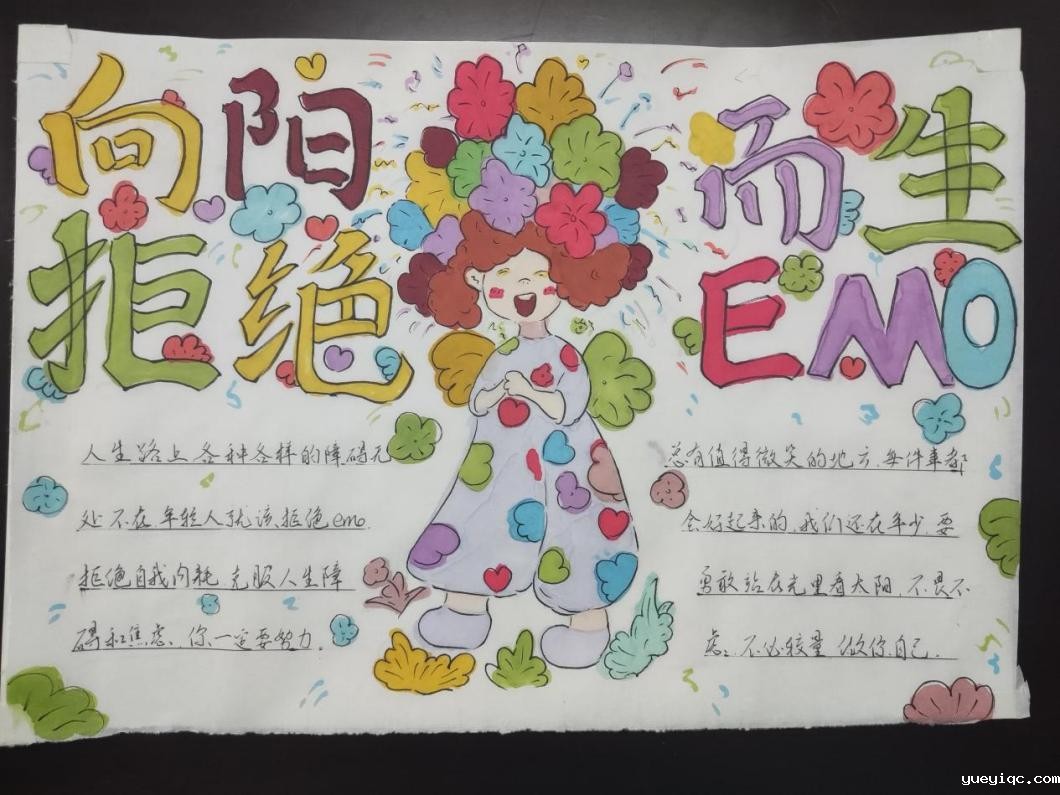 向阳 而生
拒绝 EMO
人生路上各种各样的障碍无
处不在年轻人就该拒绝emo.
拒绝自我内耗 克服人生障
碍和焦虑、你一定要努力.
总有值得微笑的地方.每件事都
会好起来的,我们还在年少.要
勇敢站在光里看太阳,不畏不
虑.不必较量 做你自己.
yueyiqc.com